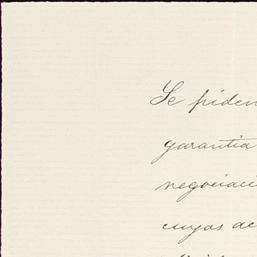 Se piden
garantia
negociaci
cuyas ac